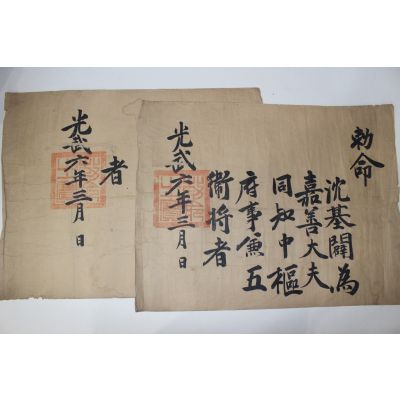 勅命
沈基闢為
嘉善大夫
同知中樞
府事兼五
衛将者
光武六年三月 日
者
光武六年三月 日